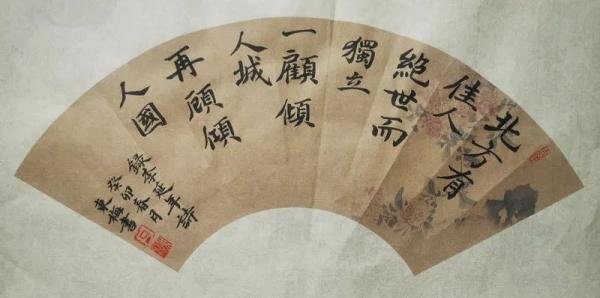 北方有
佳人
絕世而
獨立
一顧傾
人城
再顾傾
人國
錄李延年詩
癸卯春月
東梅書